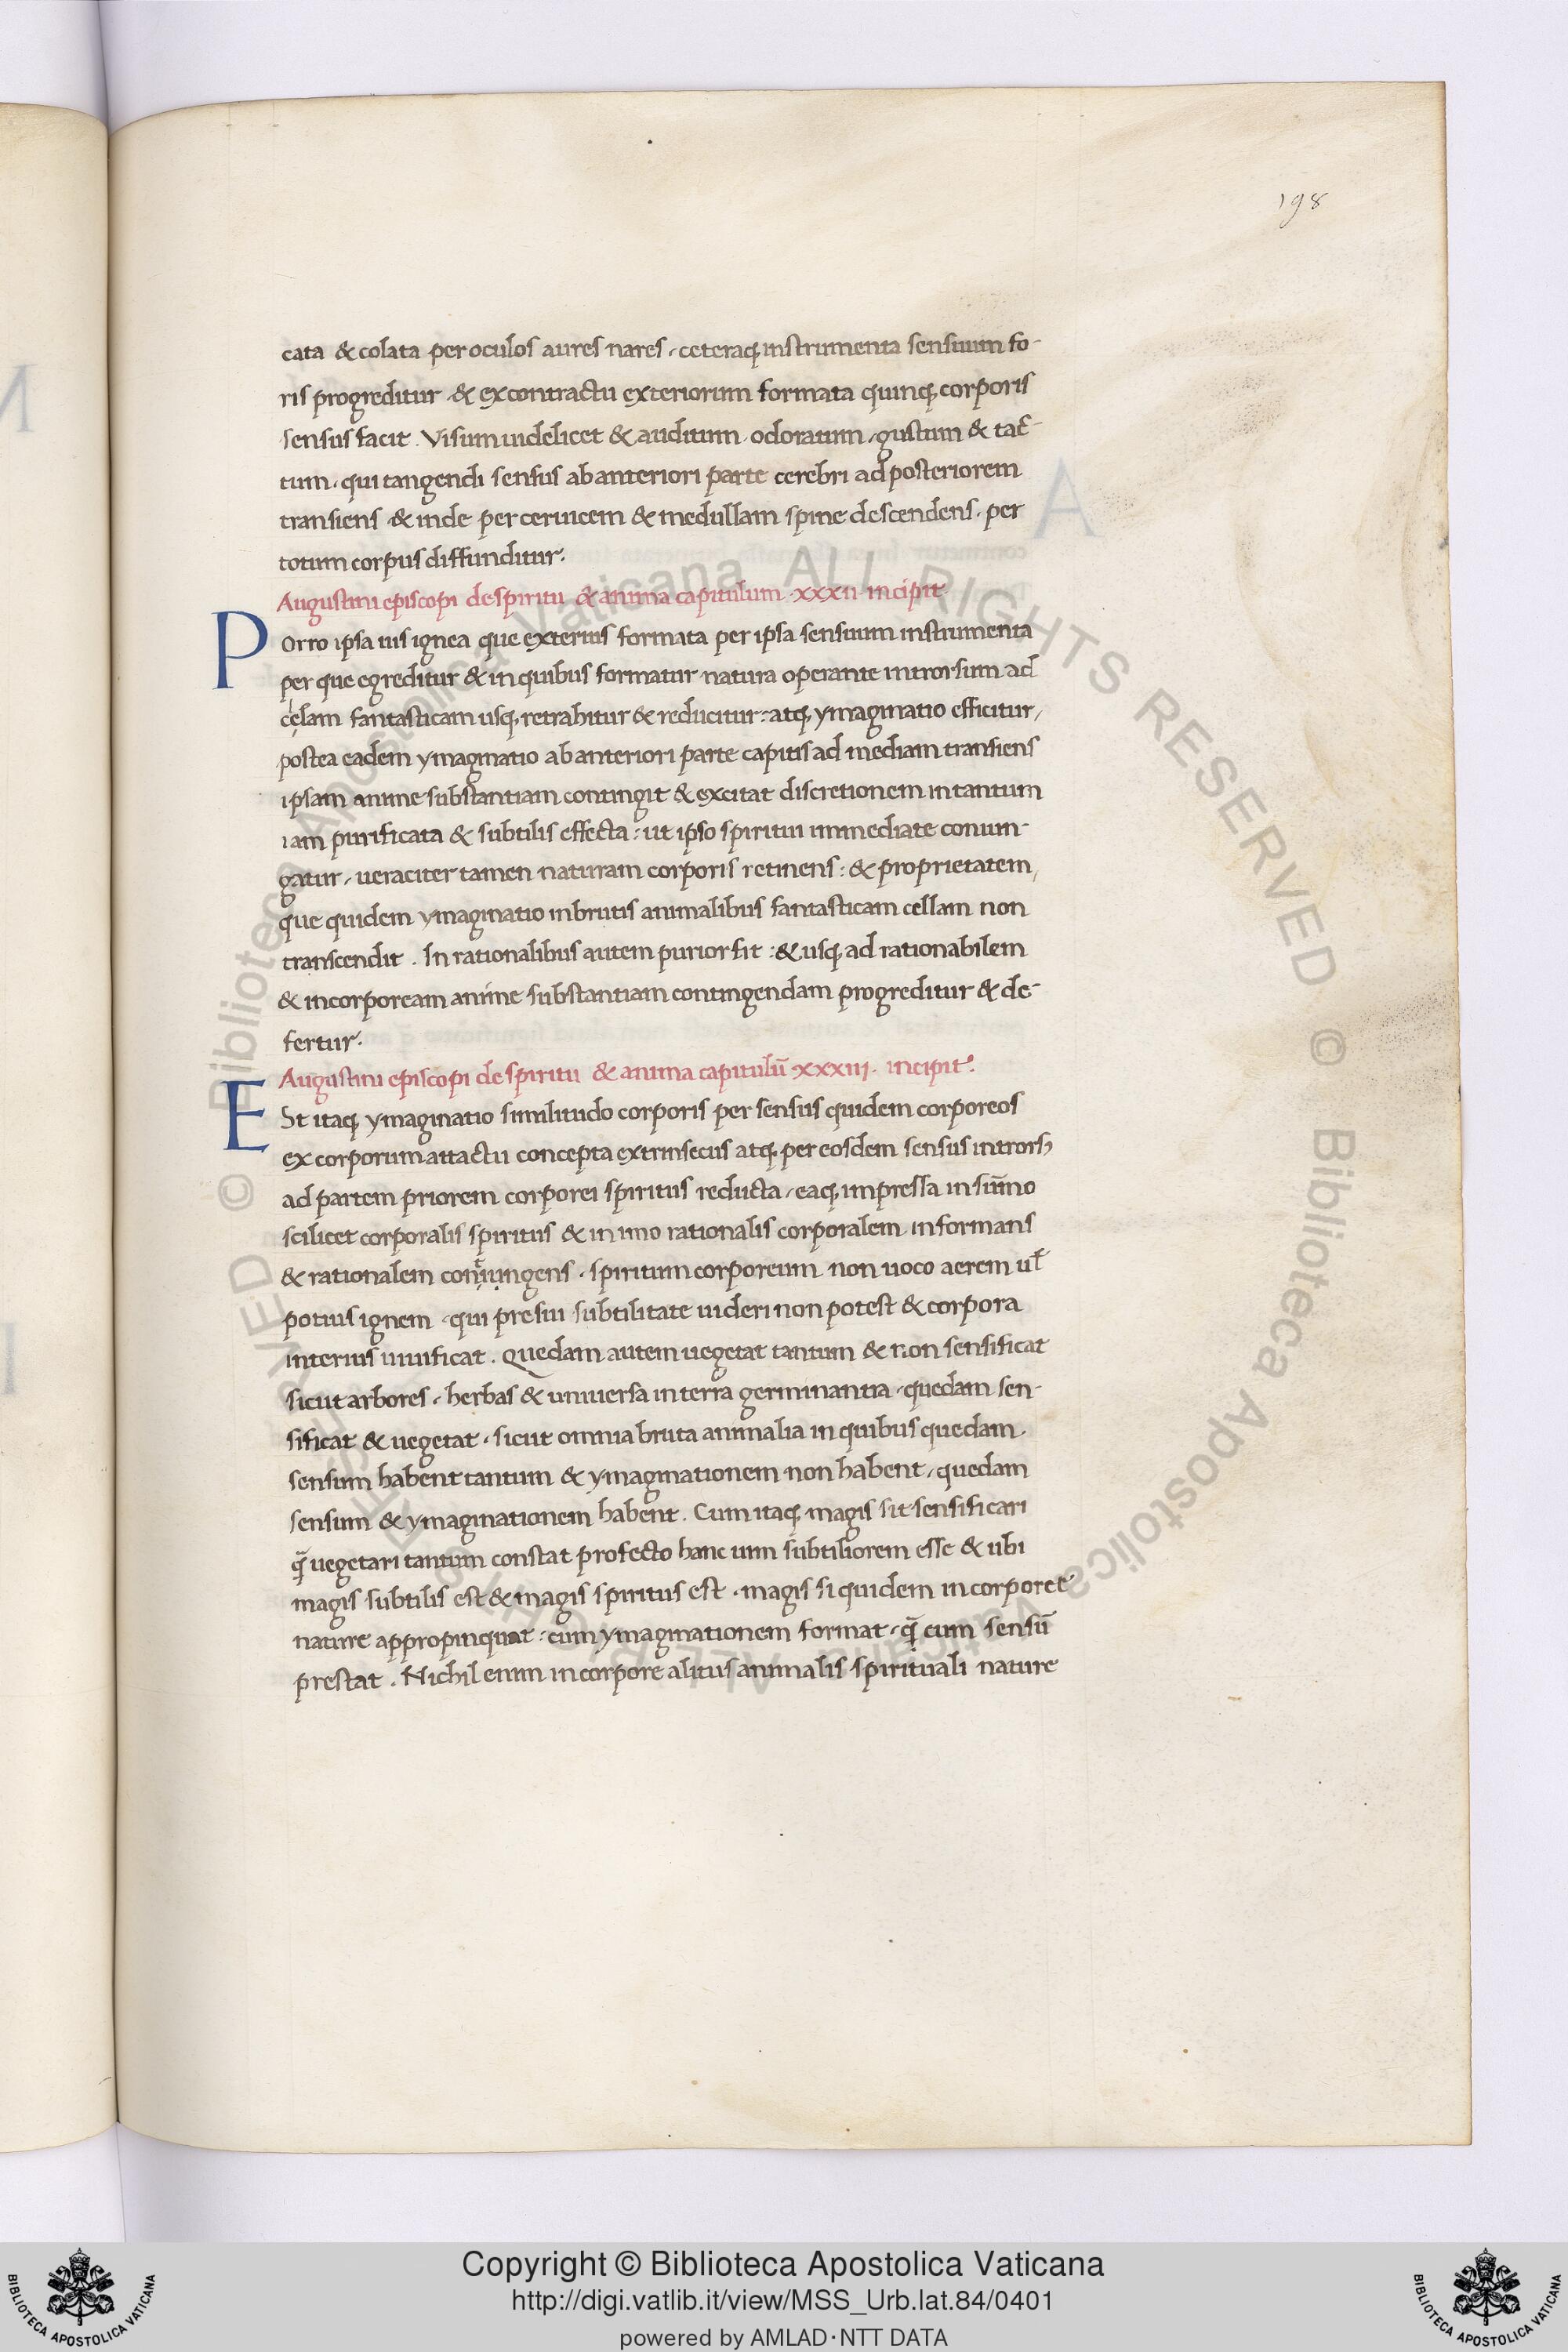 198
cata & colata per oculos aures nares, ceteraq; instrumenta sensuum fo-
ris progreditur & ex contractu exteriorum formata quinq; corporis
sensus facit. Visum uidelicet & auditum, odoratum, gustum & tac-
tum, qui tangendi sensus ab anteriori parte cerebri ad posteriorem
transiens & inde per ceruicem & medullam spine descendens, per
totum corpus diffunditur.
Augustini episcopi de spiritu & anima capitulum .xxxii incipit.
Porro ipsa uis ignea que exterius formata per ipsa sensuum instrumenta
per que egreditur & in quibus formatur natura operante introrsum ad
celam fantasticam usq; retrahitur & reducitur: atq; ymaginatio efficitur,
postea eadem ymaginatio ab anteriori parte capitis ad mediam transiens
ipsam anime substantiam contingit & excitat discretionem in tantum
iam purificata & subtilis effecta: ut ipso spiritui immediate coniun-
gatur, ueraciter tamen naturam corporis retinens: & proprietatem,
que quidem ymaginatio in brutis animalibus fantasticam cellam non
transcendit. In rationalibus autem purior fit: & usq; ad rationabilem
& incorpoream anime substantiam contingendam progreditur & de-
fertur.
Augustini episcopi de spiritu & anima capitulū .xxxiii. incipit.
Est itaq; ymaginatio similitudo corporis per sensus quidem corporeos
ex corporum attactu concepta extrinsecus atq; per eosdem sensus introrsꝫ
ad partem priorem corporei spiritus reducta, eaq; impressa in sūmo
scilicet corporalis spiritus & in imo rationalis corporalem informans
& rationalem coniungens. spiritum corporeum non uoco aerem ul̄
potius ignem, qui pre sui subtilitate uideri non potest & corpora
interius uiuificat. Quedam autem uegetat tantum & non sensificat
sicut arbores, herbas & uniuersa in terra germinantia, quedam sen-
sificat & uegetat, sicut omnia bruta animalia in quibus quedam.
sensum habent tantum & ymaginationem non habent, quedam
sensum & ymaginationem habent. Cum itaq; magis sit sensificari
q̄ uegetari tantum constat profecto hanc uim subtiliorem esse & ubi
magis subtilis est & magis spiritus est, magis si quidem in corporee
nature appropinquat: cum ymaginationem format, q̄ cum sensū
prestat. Nichil enim in corpore alitus animalis spirituali nature
© Biblioteca Apostolica Vaticana ALL RIGHTS RESERVED
© Biblioteca Apostolica Vaticana ALL RIGHTS RESERVED
Copyright © Biblioteca Apostolica Vaticana
http://digi.vatlib.it/view/MSS_Urb.lat.84/0401
powered by AMLAD·NTT DATA
BIBLIOTECA APOSTOLICA VATICANA
BIBLIOTECA APOSTOLICA VATICANA